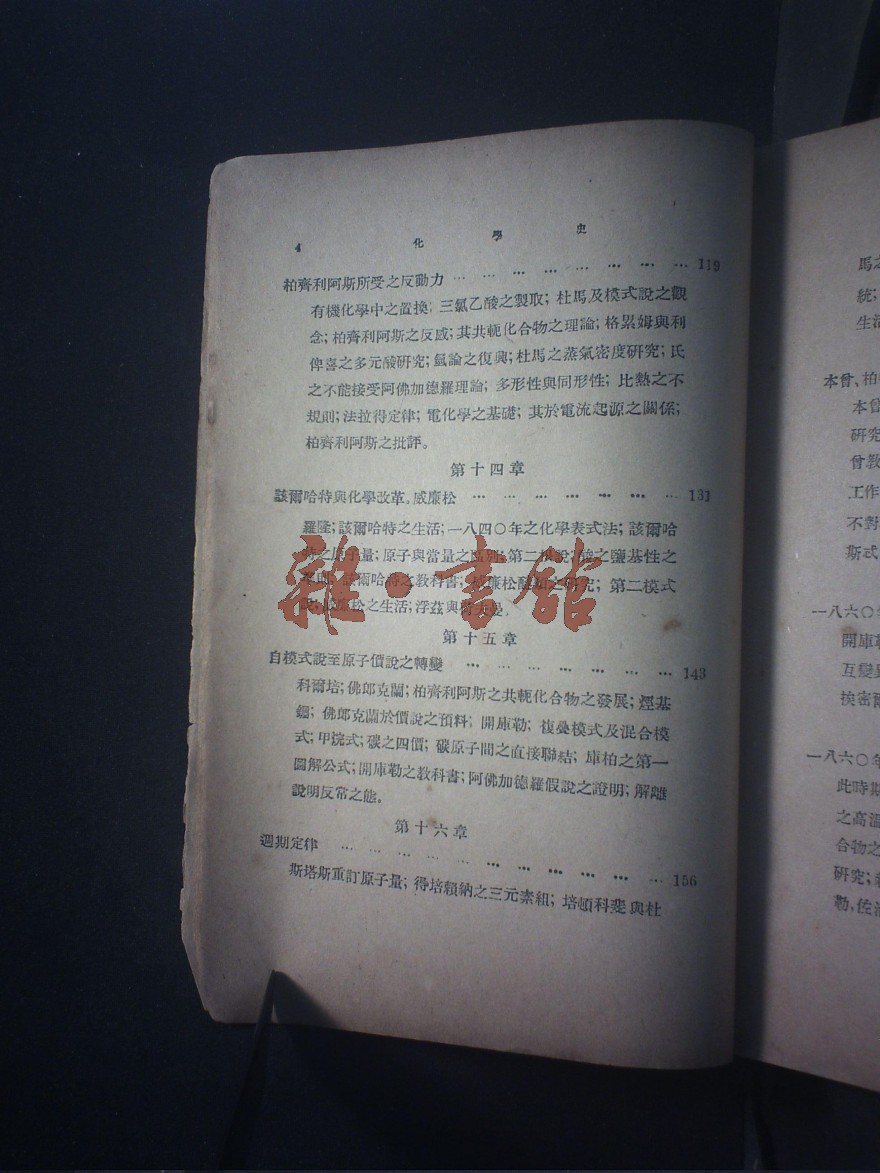 4 化學史
柏齊利阿斯所受之反動力 … … … … … … … … 119
有機化學中之置換; 三氯乙酸之製取; 杜馬及模式說之觀
念; 柏齊利阿斯之反感; 其共軛化合物之理論; 格累姆與利
俾喜之多元酸研究; 氫論之復興; 杜馬之蒸氣密度研究; 氏
之不能接受阿佛加德羅理論; 多形性與同形性; 比熱之不
規則; 法拉得定律; 電化學之基礎; 其於電流起源之關係;
柏齊利阿斯之批評。
第十四章
該爾哈特與化學改革。威廉松 … … … … … … … 131
羅隆; 該爾哈特之生活; 一八四〇年之化學表式法; 該爾哈
特之原子量; 原子與當量之區別; 第二模說; 酸之鹽基性之
該爾哈特之教科書; 威廉松醚類之研究; 第二模式
說; 威廉松之生活; 浮茲與
第十五章
自模式說至原子價說之轉變 … … … … … … … 143
科爾培; 佛郎克蘭; 柏齊利阿斯之共軛化合物之發展; 烴基
佛郎克蘭於價說之預料; 開庫勒; 複疊模式及混合模
式; 甲烷式; 碳之四價; 碳原子間之直接聯結; 庫柏之第一
圖解公式; 開庫勒之教科書; 阿佛加德羅假說之證明; 解離
說明反常之態。
第十六章
週期定律 … … … … … … … … … … … 156
斯塔斯重訂原子量; 得培賴納之三元素組; 培頓科斐與杜
馬之
統;
生活
本曾、柏
本曾
研究
曾教
工作
不對
斯式
一八六〇年
開庫勒
互變異
挨密爾
一八六〇年
此時期
之高溫
合物之
研究;
勒、佐
雜·書館